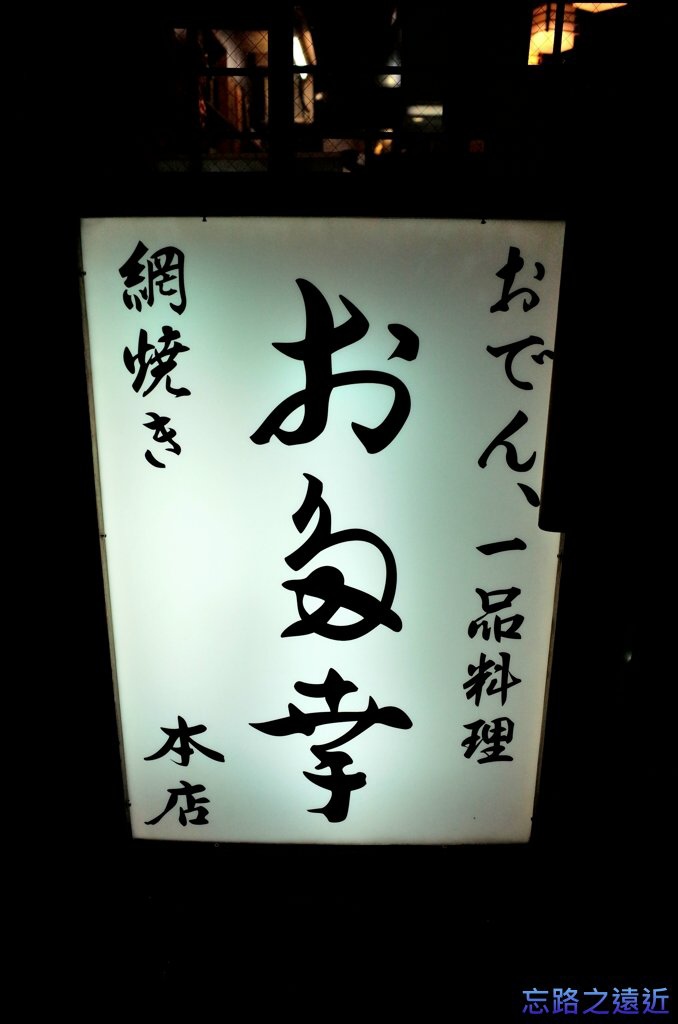 おでん、一品料理
お多幸
網焼き
本店
忘路之遠近